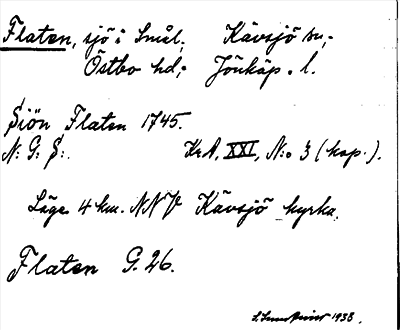 Flaten, sjö i Smål. Kävsjö sn;
Östbo hd; Jönköp. l.
Siön Flaten 1745.
N: G: S:. Kr.A, XXI, N:o 3 (kop.).
Läge 4 km. NNV Kävsjö kyrka.
Flaten G. 26.
1938.